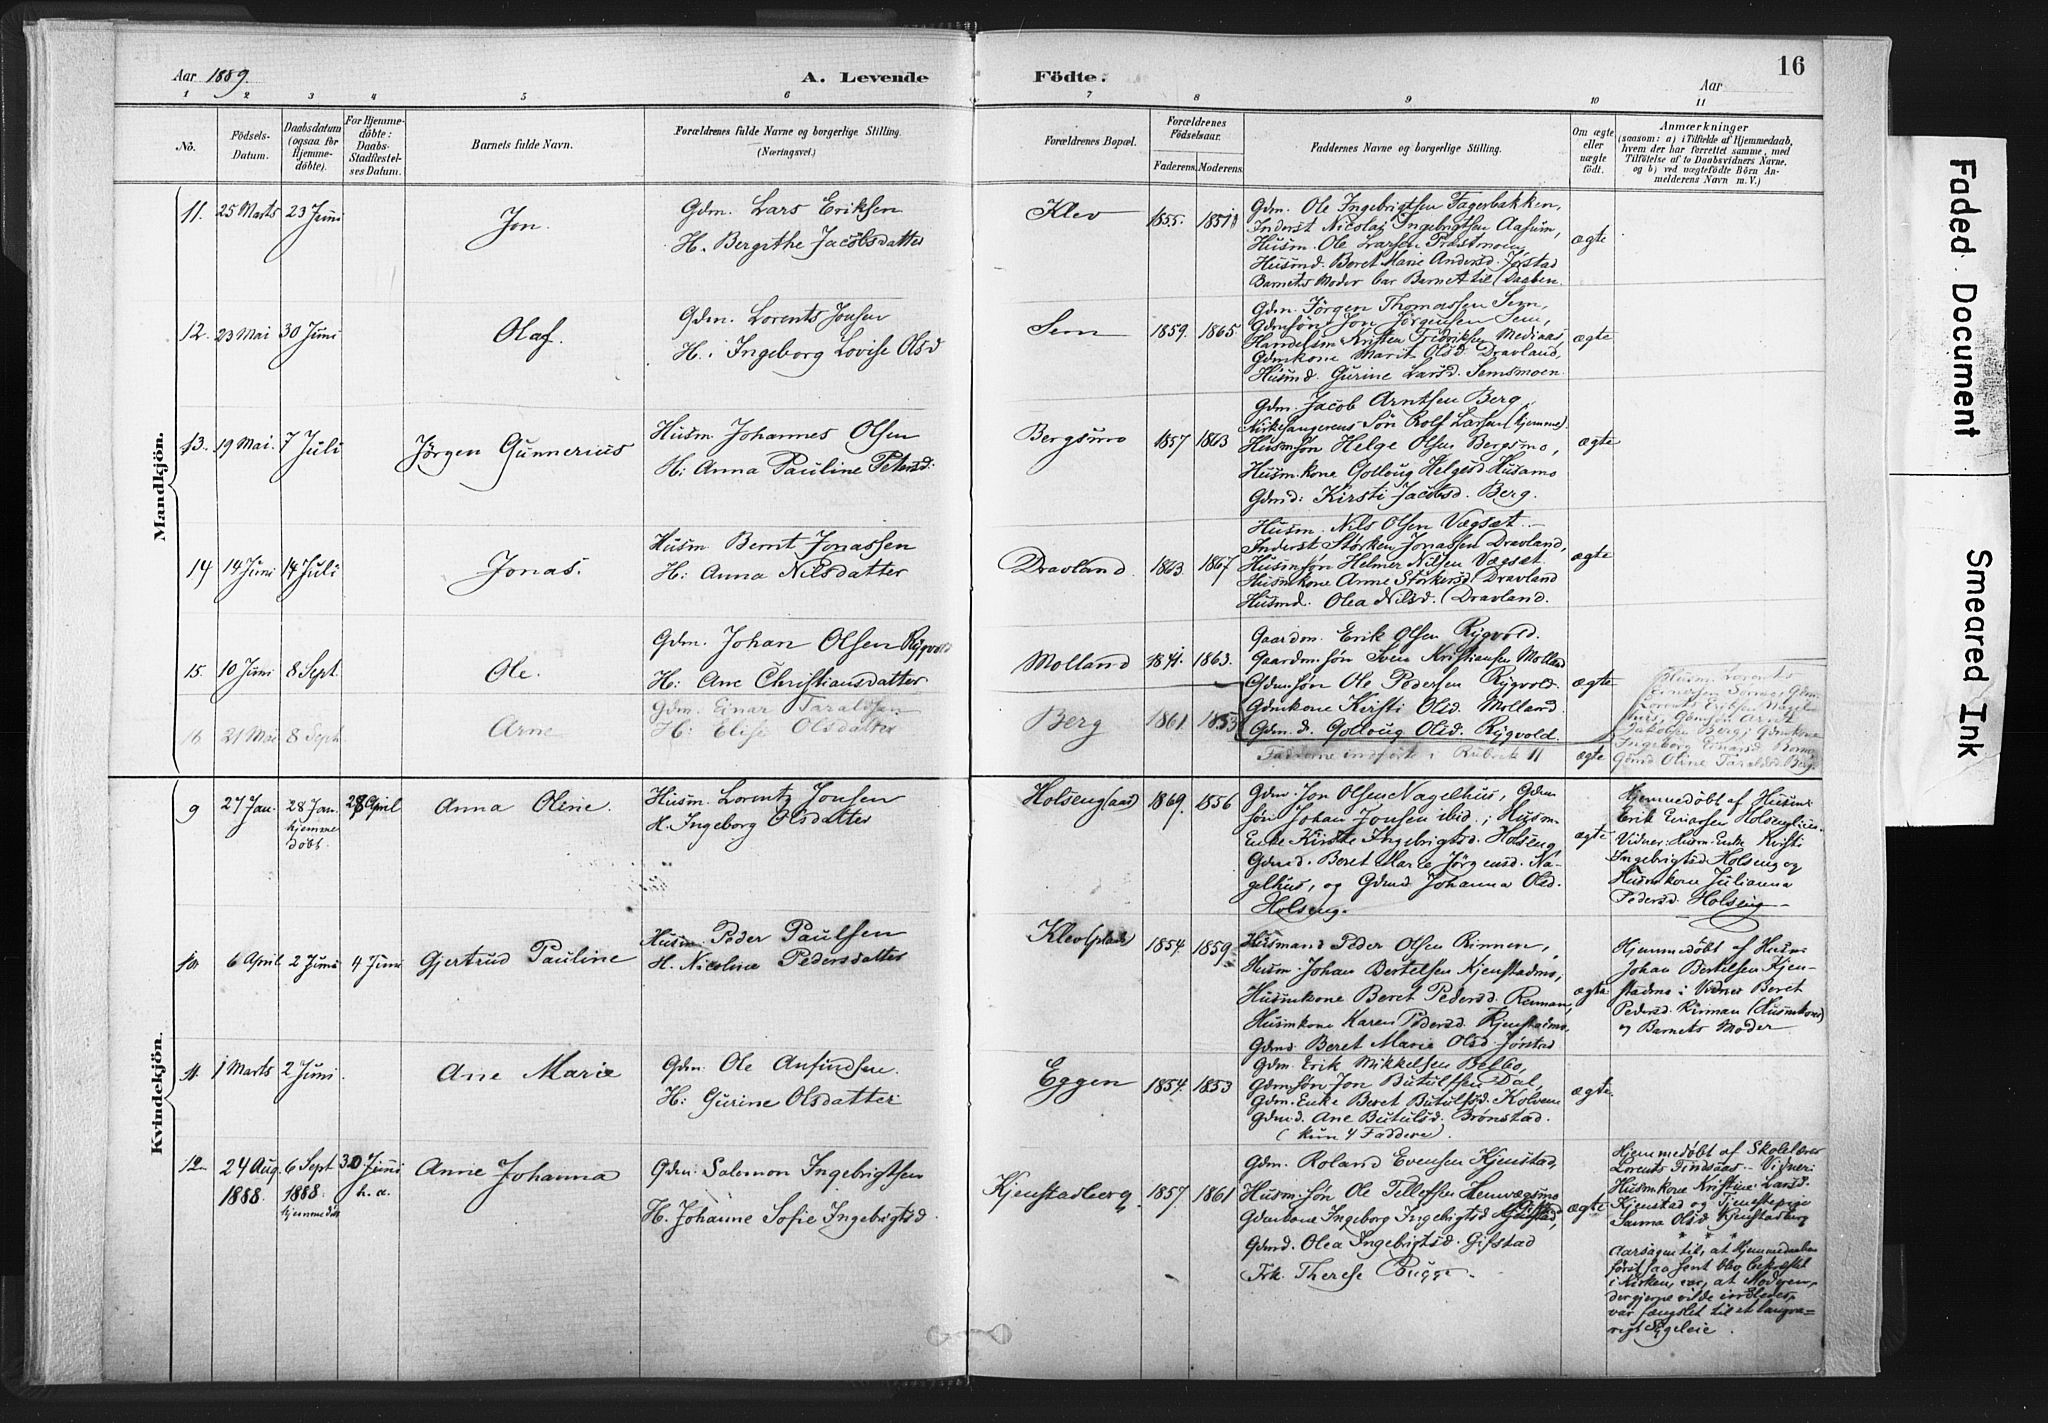 Aar 1889.
A. Levende
Födte.
Aar
16
1 2 3 4 5 6 7 8 9 10 11
No.
Födsels-
Datum.
Daabsdatum
(ogsaa for
Hjemme-
döbte).
For Hjemme-
döbte:
Daabs-
Stadfæstel-
ses Datum.
Barnets fulde Navn.
Forældrenes fulde Navne og borgerlige Stilling.
(Næringsvei.)
Forældrenes Bopæl.
Forældrenes
Födselsaar.
Faderens. Moderens.
Faddernes Navne og borgerlige Stilling.
Om ægte
eller
uægte
födt.
Anmærkninger
(saasom: a) i Tilfælde af Hjemmedaab,
hvem der har forrettet samme, med
Tilföielse af to Daabsvidners Navne,
og b) ved uægtefödte Börn An-
melderens Navn m. V.)
Mandkjön.
11. 25 Marts 23 Juni
Jon.
Gdm. Lars Eriksen
H. Bergithe Jacobsdatter
Klev
1855.
Gdm. Ole Ingebrigtsen Fagerbakken,
Inderst Nicolai Ingebrigtsen Aasum,
Husm. Ole Larsen Præstmoen,
Husmd. Beret Marie Andersd. Jørstad
Barnets Moder bar Barnet til Daaben.
ægte
12. 23 Mai 30 Juni
Olaf.
Gdm. Lorents Jonsen
H. Ingeborg Lovise Olsd
Sem
1859. 1865.
Gdm. Jörgen Thomassen Sem,
Gdmsøn Jon Jörgensen Sem,
Handelsm Kristen Fredriksen Mediaas,
Gdmkone Marit Olsd. Dravland,
Husmd. Gurine Larsd. Semsmoen
ægte
13. 19 Mai. 7 Juli
Jörgen Gunnerius
Husm. Johannes Olsen
H: Anna Pauline Petersd.
Bergsmo
1857 1863
Gdm. Jacob Arntsen Berg,
Kirkesangerens Søn Rolf Larsen (hjemme).
Husmsøn Helge Olsen Bergsmo,
Husm.kone Golloug Helgesd Husamo
Gdmd: Kirsti Jacobsd. Berg.
ægte
14 14 Juni 14 Juli
Jonas.
Husm Bernt Jonassen
H: Anna Nilsdatter
Dravland.
1863. 1867.
Husm. Nils Olsen Vægset.
Inderst Størker Jonassen Dravland,
Husmsøn Helmer Nilsen Vægset.
Husmkone Anne Størkersd Dravland
Husmd. Olea Nilsd. Dravland.
ægte
15. 10 Juni 8 Sept.
Ole.
Gdm. Johan Olsen Rygvold
H: Ane Christiansdatter
Molland
1841. 1863.
Gaardm. Erik Olsen Rygvold.
Gaardm.søn Sven Kristiansen Molland
Gdm.søn Ole Pedersen Rygvold.
Gdmkone Kirsti Olsd. Molland
Gdm.d. Golloug Olsd. Rygvold.
ægte
16 21 Mai 8 Sept.
Arne
Gdm. Einar Taraldsen
H: Elise Olsdatter
Berg
1861. 1853
Fadderne indførte i Rubrik 11
ægte
Husm. Lorents
Einersen
Lorents Eriksen Nagel-
hus, Gdmsøn Arnt
Jakobsen Berg; Gdmkone
Ingeborg Einarsd.
Gdmd Oline Taraldsd. Berg.
Kvindekjön.
9 27 Jan. 28 Jan.
hjemme
döbt. 28 April
Anna Oline.
Husm. Lorentz Jonsen
H. Ingeborg Olsdatter
Holseng(aas)
1869. 1856
Gdm. Jon Olsen Nagelhus, Gdm
søn Johan Jonsen ibid.; Husm.
Enke Kirstie Ingebrigtsd. Holseng,
Gdm.d. Beret Marie Jörgensd. Na-
gelhus, og Gdmd Johanna Olsd.
Holseng.
ægte
Hjemmedøbt af Husm:
Erik Eriassen Holsenglien.
Vidner: Husm. Enke Kirsti
Ingebrigtsd Holseng og
Husmkone Julianna
Pedersd. Holseng
10. 6 April 2 Juni 4 Juni
Gjertrud Pauline
Husm. Peder Paulsen
H. Nicoline Pedersdatter
Klev(plads)
1854. 1859.
Husmand Peder Olsen Rinnen,
Husm. Johan Bertelsen Kjenstadmo,
Husmkone Beret Pedersd. Renman,
Husmkone Karen Pedersd. Kjenstadmo
Gdmd. Beret Marie Olsd. Jørstad
ægte
Hjemmedøbt af Husm
Johan Bertelsen Kjen-
stadmo: Vidner Beret
Pedersd. Rinman (Husmkone)
og Barnets Moder
11. 1 Marts 2 Juni.
Ane Marie
Gdm. Ole Anfindsen.
H: Gurine Olsdatter
Eggen
1854. 1853
Gdm. Erik Mikkelsen Belbo,
Gdmsøn Jon Butulfsen Dal,
Gdm. Enke Beret Butulfsd. Kolven
Gdmd. Ane Butulsd. Brønstad.
(kun 4 Faddere).
ægte.
12 24 Aug.
1888. 6 Sept
1888.
hjemmedøbt 30 Juni
h. a.
Anne Johanna
Gdm: Salomon Ingebrigtsen
H. Johanne Sofie Ingebrigtsd.
Kjenstadberg
1857. 1861
Gdm. Roland Evensen Kjenstad,
Husm.søn Ole Tellefsen Hemvægsmo
Gdmkone Ingeborg Ingebrigtsd
Gdmd. Olea Ingebrigtsd. Gifstad
Frk. Therese Bugge.
ægte
Hjemmedøbt af Skolelærer
Lorents Tindsaas. Vidner:
Husmkone Kristine Larsd.
Kjenstad og Tjenestepige
Sanna Olsd. Kjenstadberg
* * *
Aarsagen til, at Hjemmedaaben
først saa sent blev bekræftet
i Kirken, var, at Moderen,
der gjerne vilde indledes,
var fængslet til et langva-
rigt Sygeleie.
Faded Document
Smeared Ink